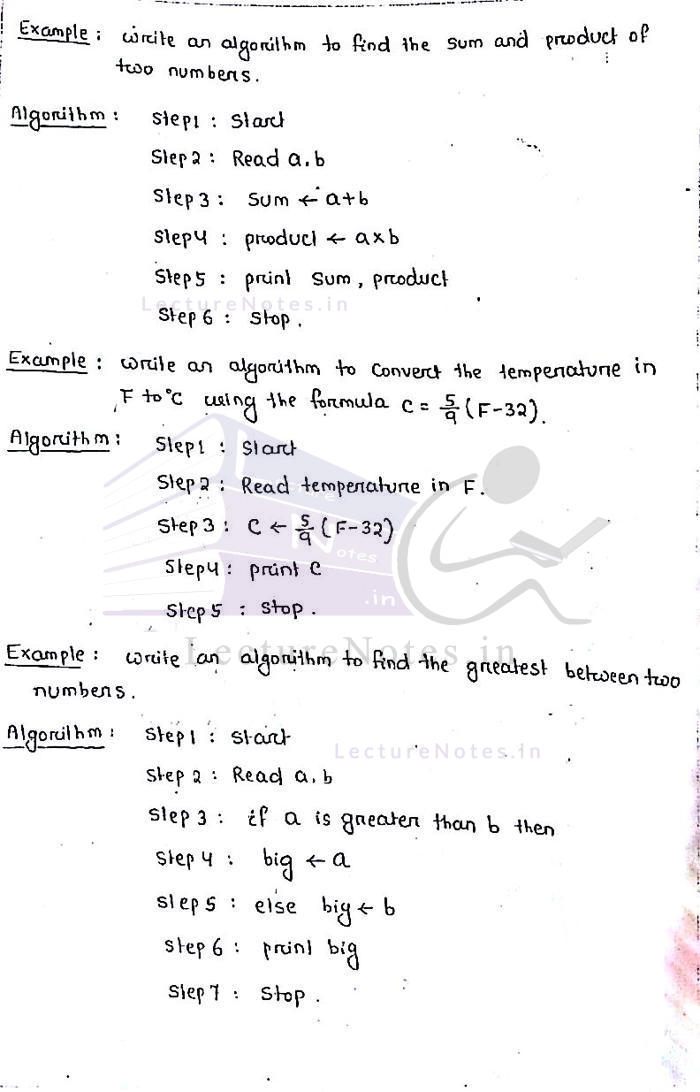 Example : write an algorithm to find the sum and product of
two numbers.
Algorithm : Step1 : Start
Step 2 : Read a, b
Step 3 : Sum ← a+b
Step4 : product ← a×b
Step5 : print Sum, product
LectureNotes.in
Step 6 : Stop.
Example : write an algorithm to convert the temperature in
F to °C using the formula C = 5/9 (F-32).
Algorithm : Step1 : Start
Step 2 : Read temperature in F.
Step 3 : C ← 5/9 (F-32)
Notes
Step4 : print C
.in
Step 5 : Stop.
LectureNotes.in
Example : write an algorithm to find the greatest between two
numbers.
Algorithm : Step 1 : Start
LectureNotes.in
Step 2 : Read a, b
Step 3 : if a is greater than b then
Step 4 : big ← a
Step 5 : else big ← b
Step 6 : print big
Step 7 : Stop.